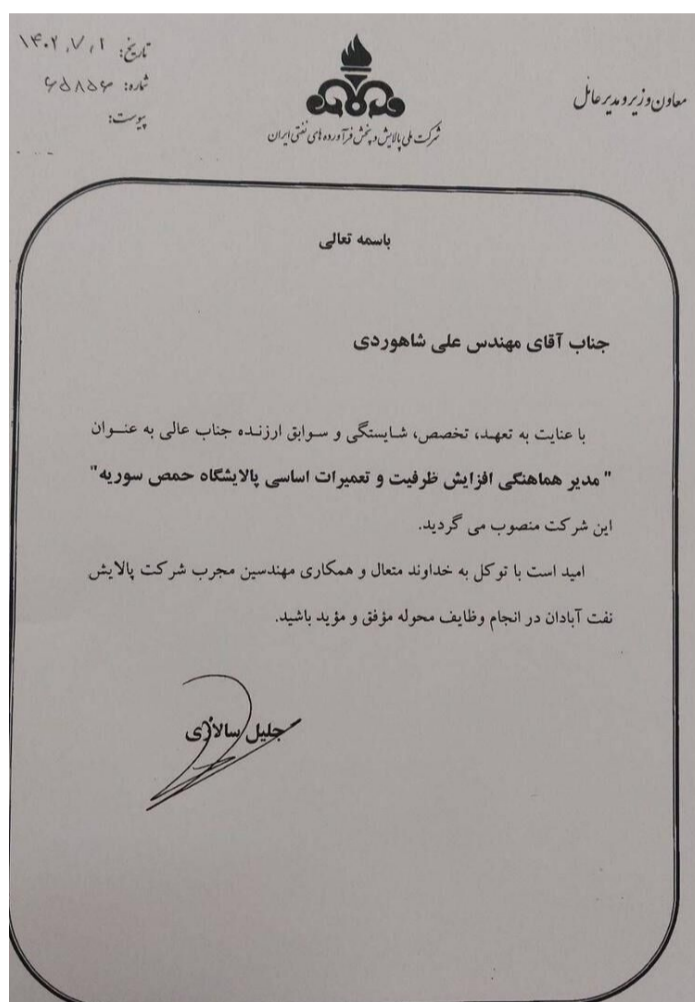 تاریخ: ۱۴۰۲/۷/۱
شماره: ۶۵۸۵۶
پیوست:
شرکت ملی پالایش و پخش فرآورده های نفتی ایران
معاون وزیر و مدیر عامل
باسمه تعالی
جناب آقای مهندس علی شاهوردی
با عنایت به تعهد، تخصص، شایستگی و سوابق ارزنده جناب عالی به عنوان
" مدیر هماهنگی افزایش ظرفیت و تعمیرات اساسی پالایشگاه حمص سوریه"
این شرکت منصوب می گردید.
امید است با توکل به خداوند متعال و همکاری مهندسین مجرب شرکت پالایش
نفت آبادان در انجام وظایف محوله مؤفق و مؤید باشید.
جلیل سالاری